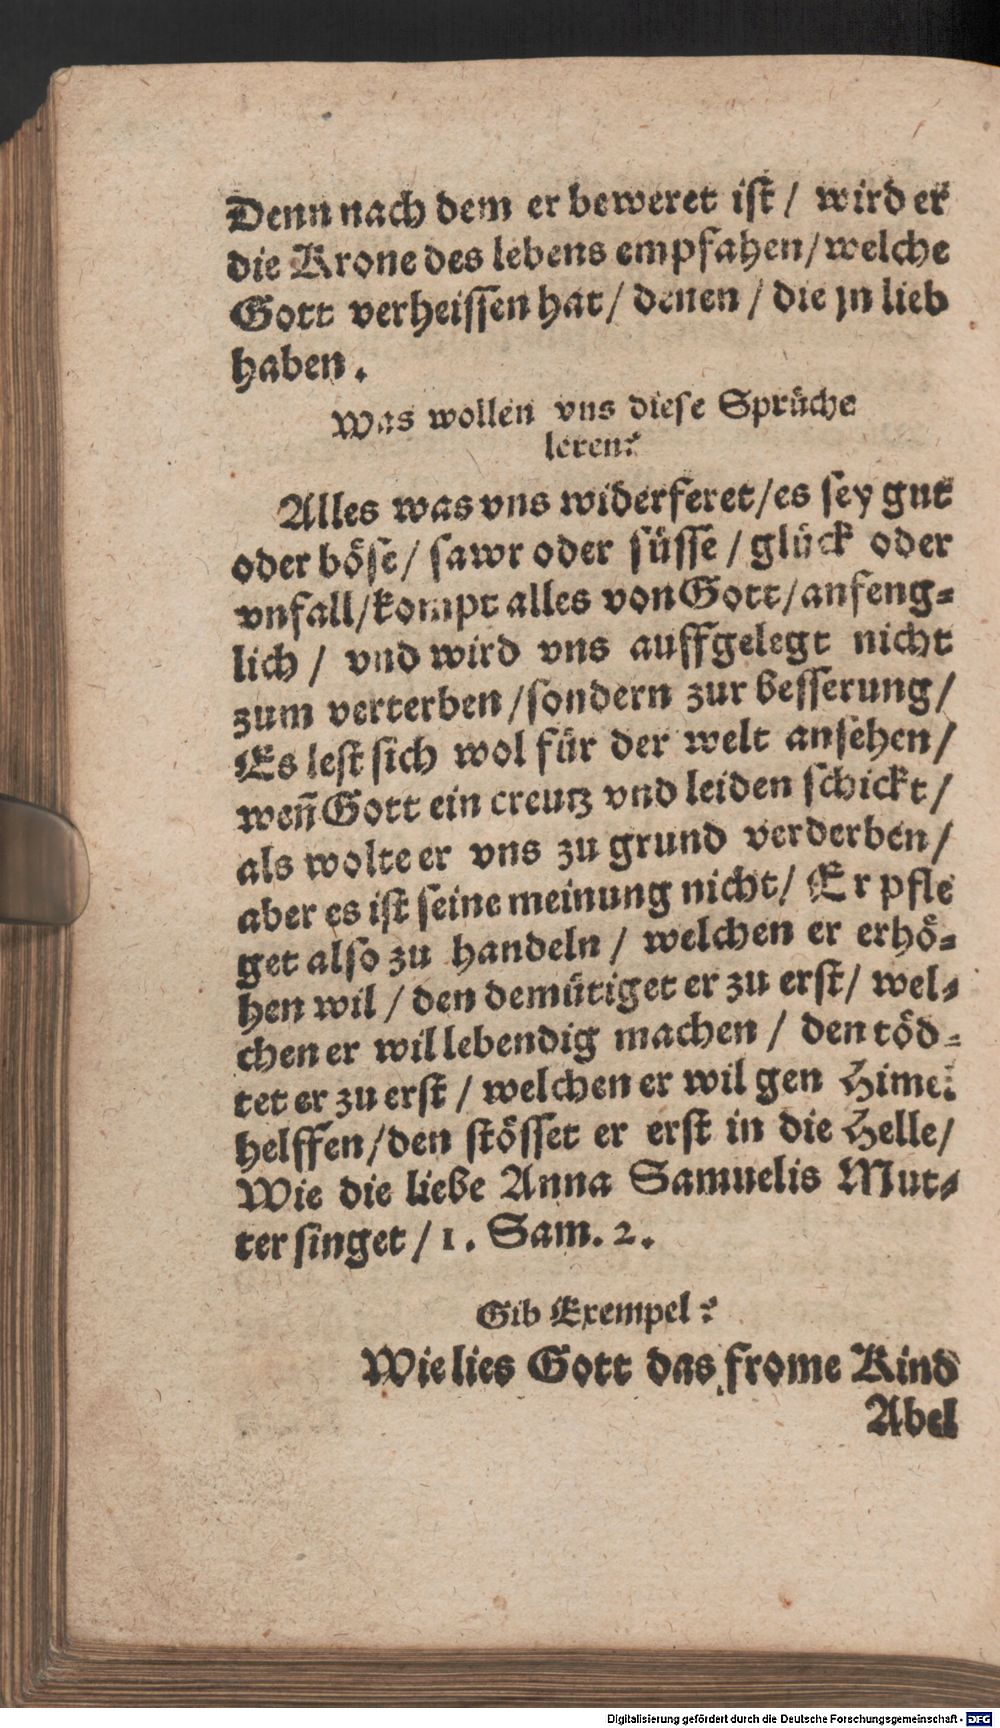 Denn nach dem er beweret iſt / wird er
die Krone des lebens empfahen / welche
Gott verheiſſen hat / denen / die jn lieb
haben.
Was wollen vns dieſe Sprüche
leren?
Alles was vns widerferet / es ſey gut
oder böſe / ſawr oder ſüſſe / glück oder
vnfall / kompt alles von Gott / anfeng⸗
lich / vnd wird vns auffgelegt nicht
zum verterben / ſondern zur beſſerung /
Es leſt ſich wol für der welt anſehen /
weñ Gott ein creutz vnd leiden ſchickt /
als wolte er vns zu grund verderben /
aber es iſt ſeine meinung nicht / Er pfle
get alſo zu handeln / welchen er erhö⸗
hen wil / den demütiget er zu erſt / wel⸗
chen er wil lebendig machen / den töd⸗
tet er zu erſt / welchen er wil gen Himel
helffen / den ſtöſſet er erſt in die Helle /
Wie die liebe Anna Samuelis Mut⸗
ter ſinget / 1. Sam. 2.
Gib Exempel?
Wie lies Gott das frome Kind
Abel
Digitalisierung gefördert durch die Deutsche Forschungsgemeinschaft - DFG